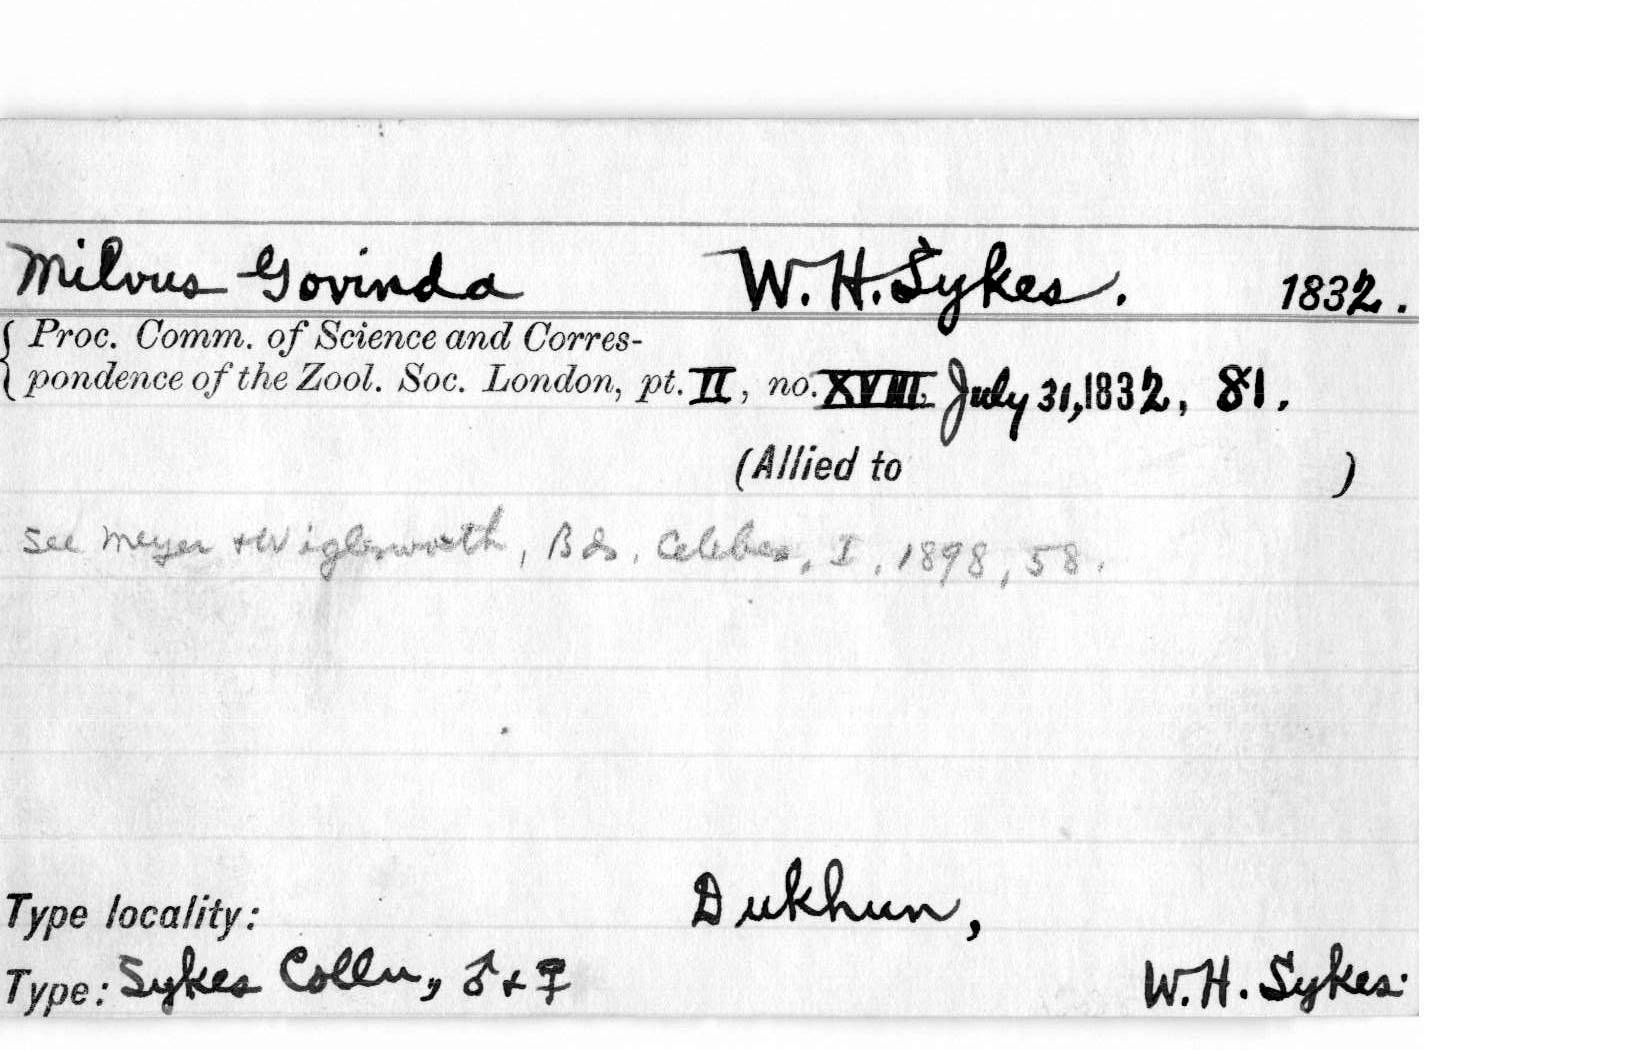 Milvus Govinda W. H. Sykes. 1832.
{ Proc. Comm. of Science and Corres-
pondence of the Zool. Soc. London, pt. II, no. XVIII, July 31, 1832, 81.
(Allied to )
See Meyer + Wiglesworth, Bds. Celebes, I, 1898, 58.
Type locality: Dukhun,
Type: Sykes Colln., ♂ + ♀ W. H. Sykes.